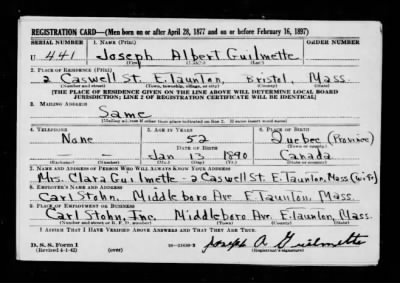 REGISTRATION CARD—(Men born on or after April 28, 1877 and on or before February 16, 1897)
SERIAL NUMBER 1. NAME (Print) ORDER NUMBER
U 441 Joseph Albert Guilmette
(First) (Middle) (Last)
2. PLACE OF RESIDENCE (Print)
2 Caswell St. E. Taunton, Bristol, Mass.
(Number and street) (Town, township, village, or city) (County) (State)
[THE PLACE OF RESIDENCE GIVEN ON THE LINE ABOVE WILL DETERMINE LOCAL BOARD
JURISDICTION; LINE 2 OF REGISTRATION CERTIFICATE WILL BE IDENTICAL]
3. MAILING ADDRESS
Same
[Mailing address if other than place indicated on line 2. If same insert word same]
4. TELEPHONE 5. AGE IN YEARS 6. PLACE OF BIRTH
None 52 Quebec (Province)
DATE OF BIRTH (Town or county)
Jan 13 1890 Canada
(Exchange) (Number) (Mo.) (Day) (Yr.) (State or country)
7. NAME AND ADDRESS OF PERSON WHO WILL ALWAYS KNOW YOUR ADDRESS
Mrs. Clara Guilmette - 2 Caswell St. E. Taunton, Mass (wife)
8. EMPLOYER'S NAME AND ADDRESS
Carl Stohn, Middleboro Ave E. Taunton, Mass.
9. PLACE OF EMPLOYMENT OR BUSINESS
Carl Stohn, Inc. Middleboro Ave. E. Taunton, Mass.
(Number and street or R. F. D. number) (Town) (County) (State)
I AFFIRM THAT I HAVE VERIFIED ABOVE ANSWERS AND THAT THEY ARE TRUE.
D. S. S. Form 1
(Revised 4-1-42) (over) Joseph A Guilmette